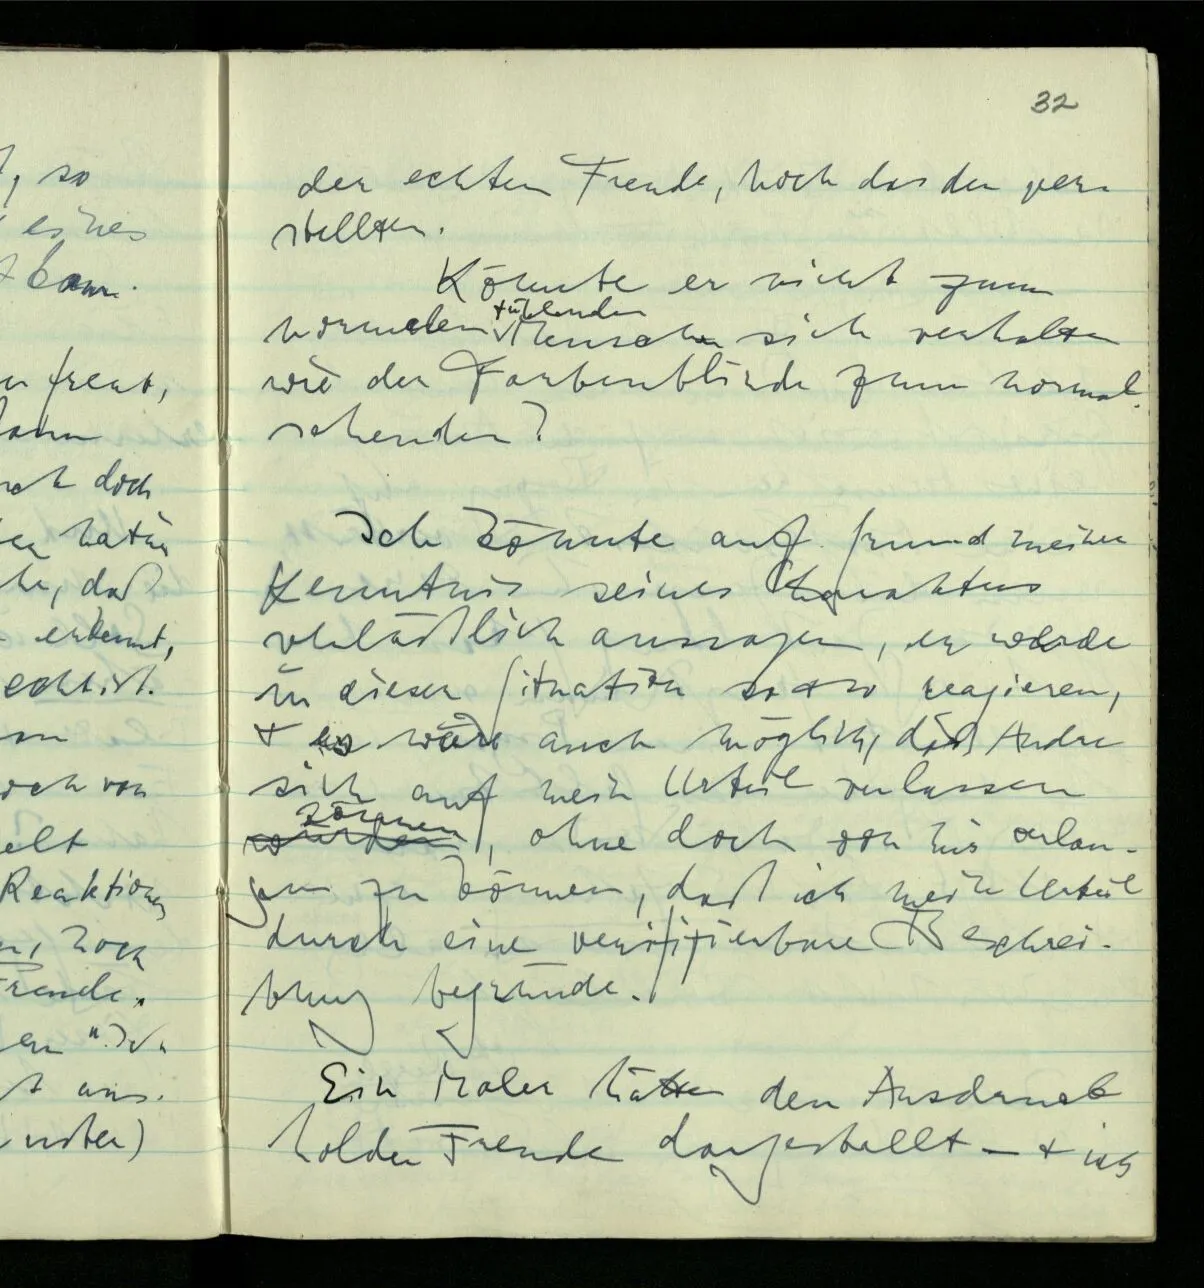 , so
eines
kann.
freut,
kann
doch
natür
, daß
erkennt,
echt ist.
doch von
Reaktionen
, noch
Freude.
en "Ich
aus.
unten)
32
der echten Freude, noch das der ver
stellten.
Könnte er nicht zum
fühlenden
normalen Menschen sich verhalten
wie der Farbenblinde zum normal-
sehenden?
Ich könnte auf Grund meiner
Kenntnis seines Charakters
verläßlich aussagen, er werde
in dieser Situation so + so reagieren,
+ es wäre auch möglich, daß Andre
sich auf mein Urteil verlassen
können
würden, ohne doch von mir verlan-
gen zu können, daß ich mein Urteil
durch eine verifizierbare Beschrei-
bung begründe.
Ein Maler hätte den Ausdruck
holder Freude dargestellt – + ich